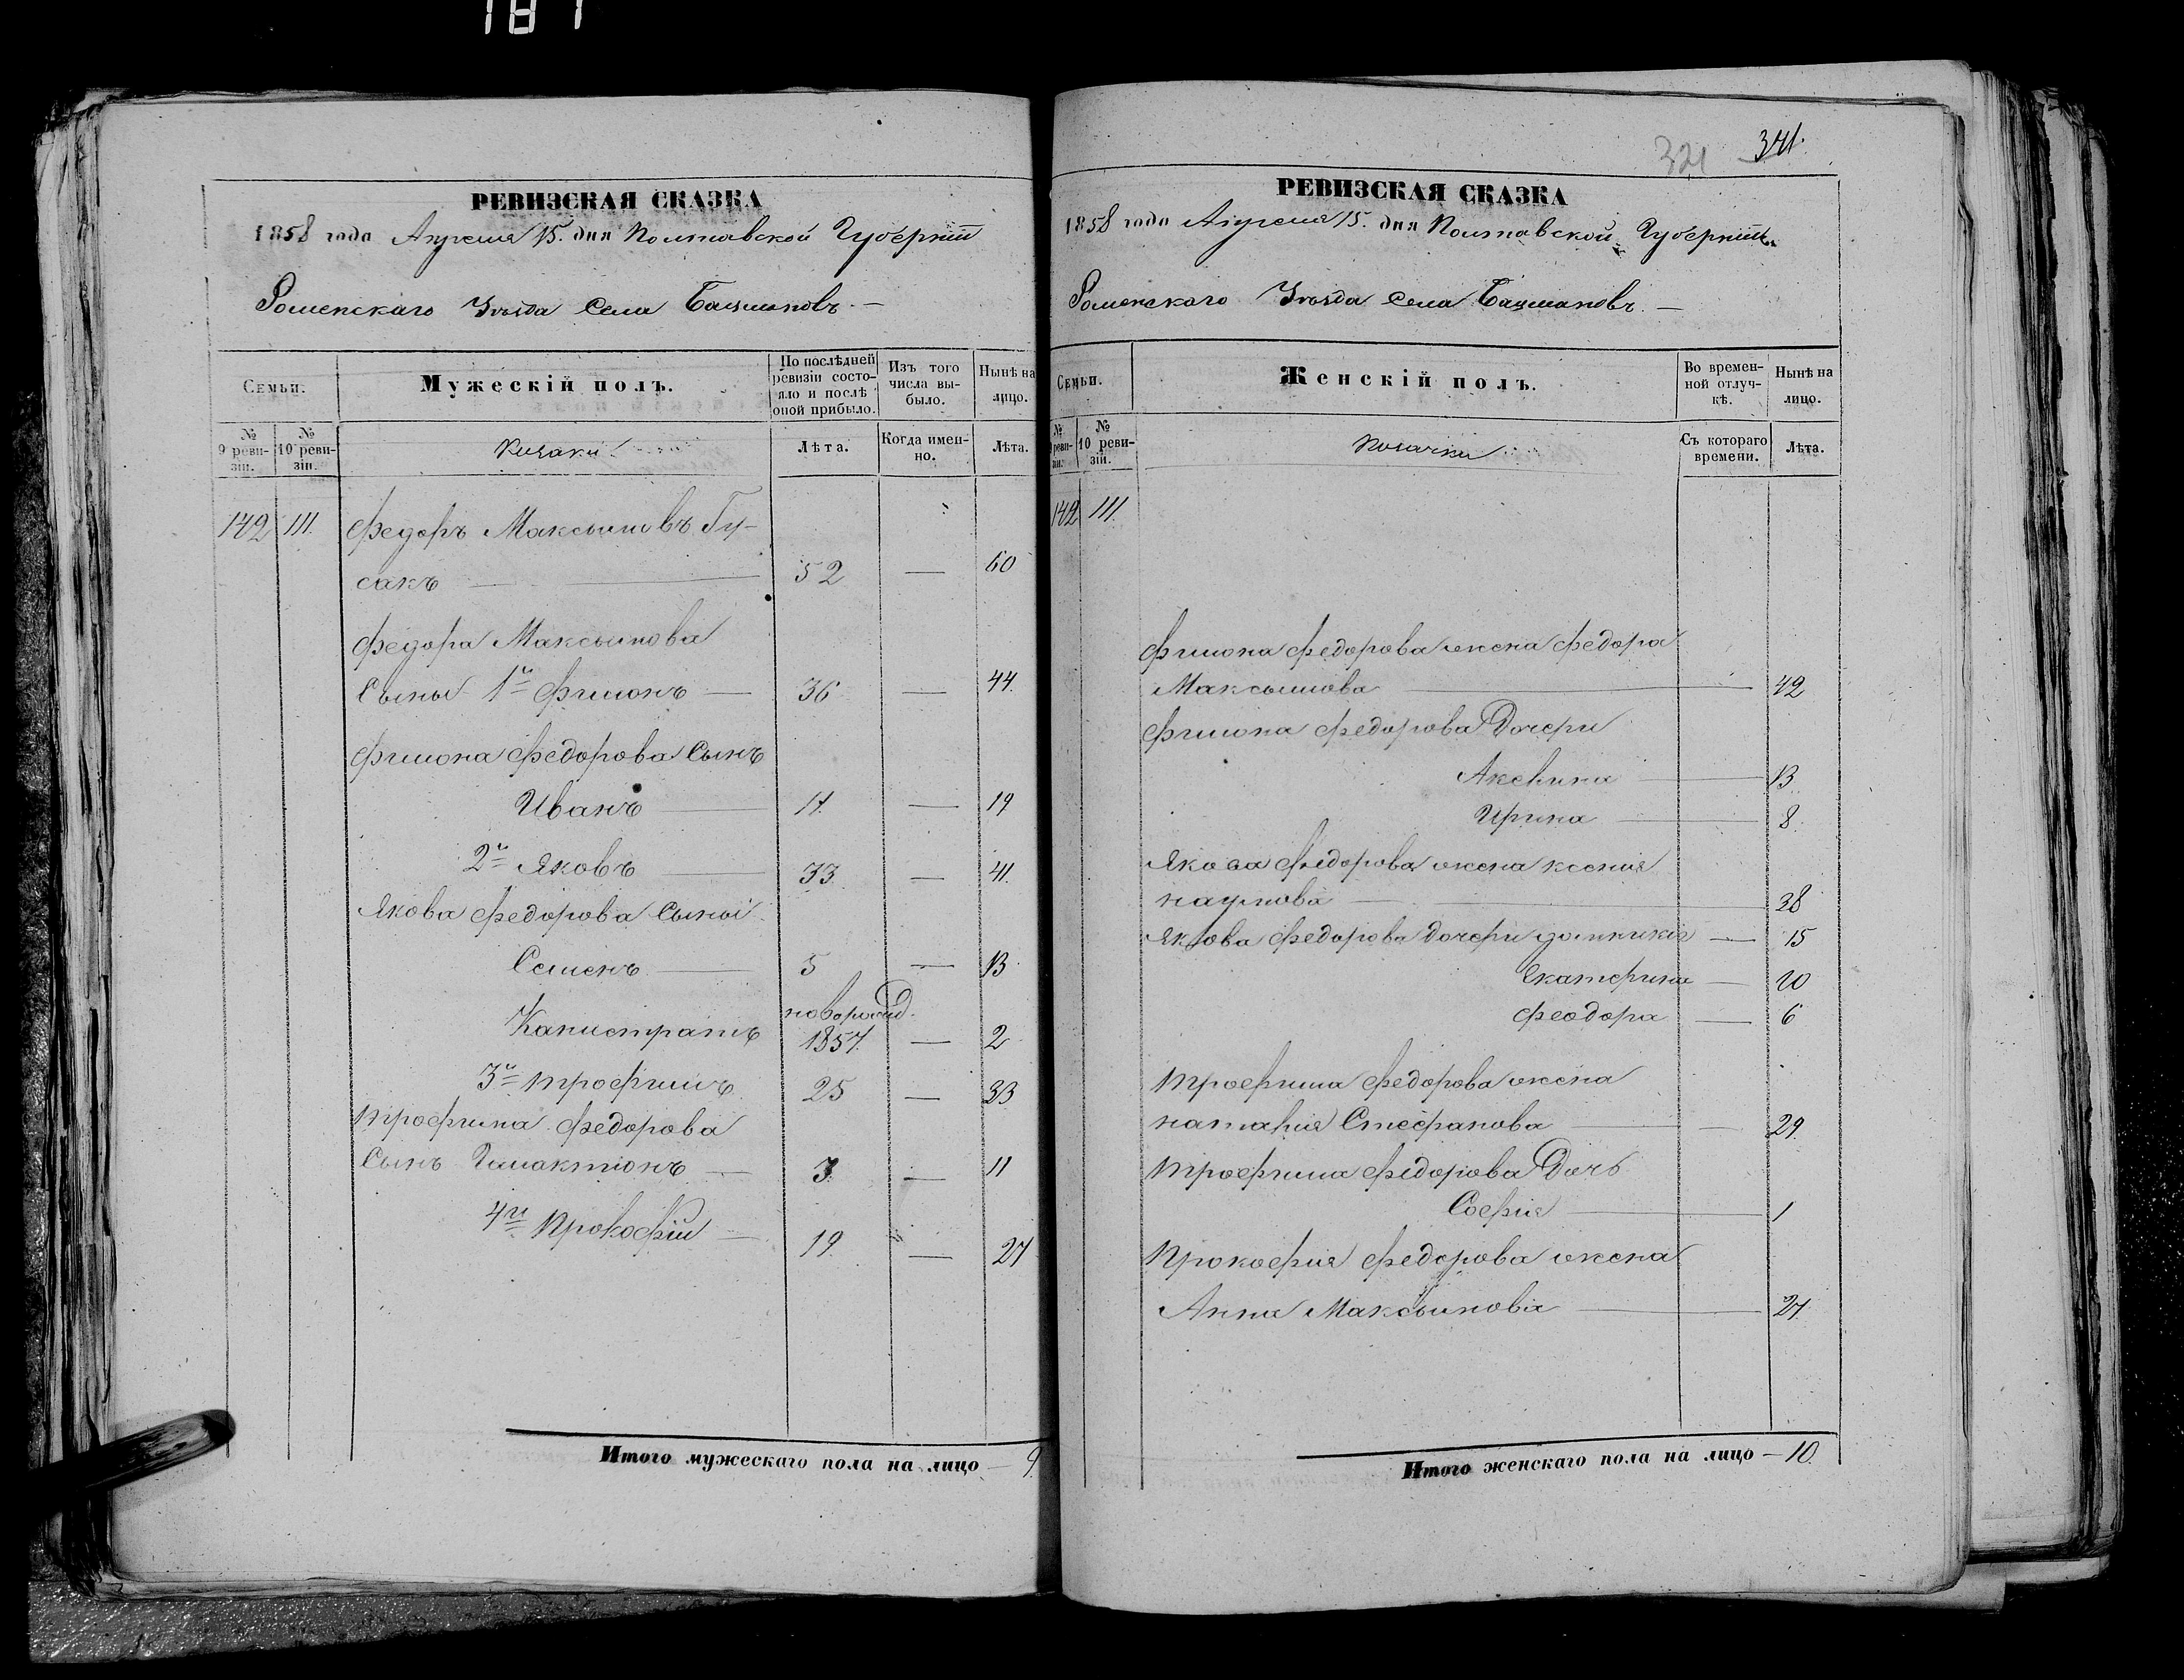 187
РЕВИЗСКАЯ СКАЗКА
1858 года Апреля 15. дня Полтавской Губерніи
Роменскаго Уѣзда Села Бацмановъ. —
Семьи.
Мужескій полъ.
По послѣдней ревизіи состояло и послѣ оной прибыло.
Изъ того числа выбыло.
Нынѣ на лицо.
№ 9 ревизіи.
№ 10 ревизіи.
Козаки
Лѣта.
Когда именно.
Лѣта.
142 111. Федоръ Максимовъ Гу-
сакъ — 52 — 60
Федора Максимова
Сыны 1й Филионъ — 36 — 44.
Филиона Федорова Сынъ
Иванъ — 11. — 19
2й Яковъ — 33. — 41.
Якова Федорова Сыны
Семенъ — 5 — 13
новорожд.
Калистратъ 1857. — 2
3й Трофимъ 25 — 33
Трофима Федорова
Сынъ Галактіонъ — 3. — 11
4й Прокофій — 19. — 27
Итого мужескаго пола на лицо — 9
321 341.
РЕВИЗСКАЯ СКАЗКА
1858 года Апреля 15. дня Полтавской Губерніи
Роменскаго Уѣзда Села Бацмановъ. —
Семьи.
Женскій полъ.
Во временной отлучкѣ.
Нынѣ на лицо.
№ 9 ревизіи.
№ 10 ревизіи.
Козачки
Съ котораго времени.
Лѣта.
142 111.
Филиона Федорова жена Федора
Максимова — 42
Филиона Федорова Дочери
Аксенина — 13
Ирина — 8.
Якова Федорова жена Ксения
Наумова — 38
Якова Федорова дочери — 15
Екатерина — 10
Феодора — 6
Трофима Федорова жена
Наталия Стефанова — 29.
Трофима Федорова Дочь
София — 1
Прокофия Федорова жена
Анна Максимова — 27.
Итого женскаго пола на лицо — 10.